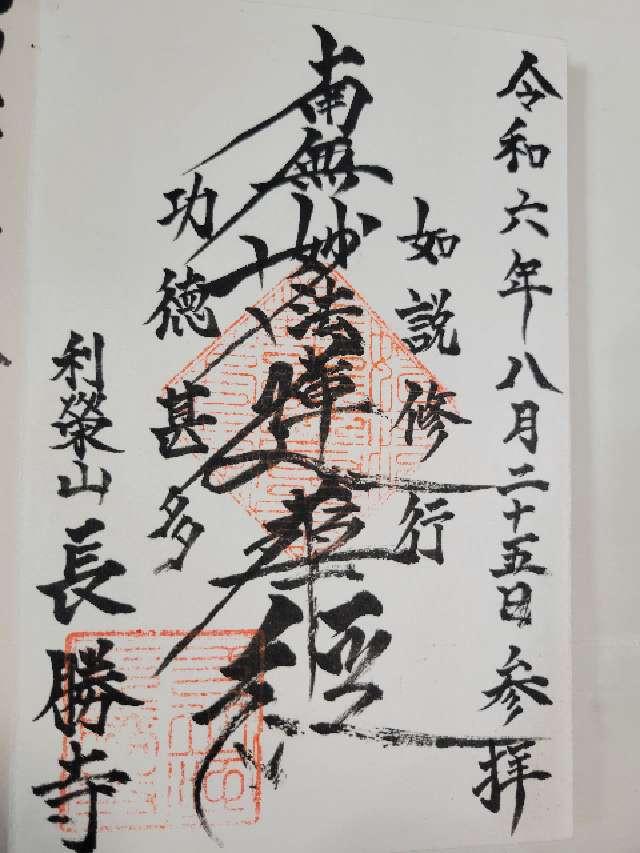 令和六年八月二十五日 参拝
如説修行
南無妙法蓮華経
功徳甚多
利榮山 長勝寺